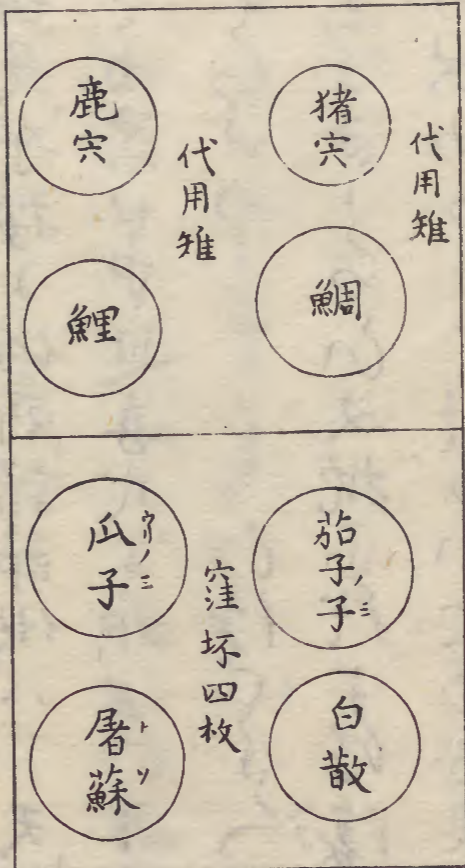 代用雉
猪宍
鯛
代用雉
鹿宍
鯉
茄子ノ子ミ
白散
窪坏四枚
瓜子ウリノミ
屠蘇トソ